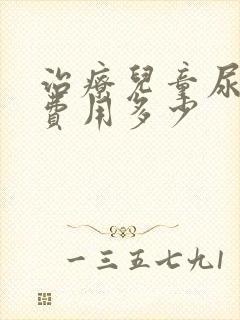 治療兒童尿
費用多少
一三五七九1